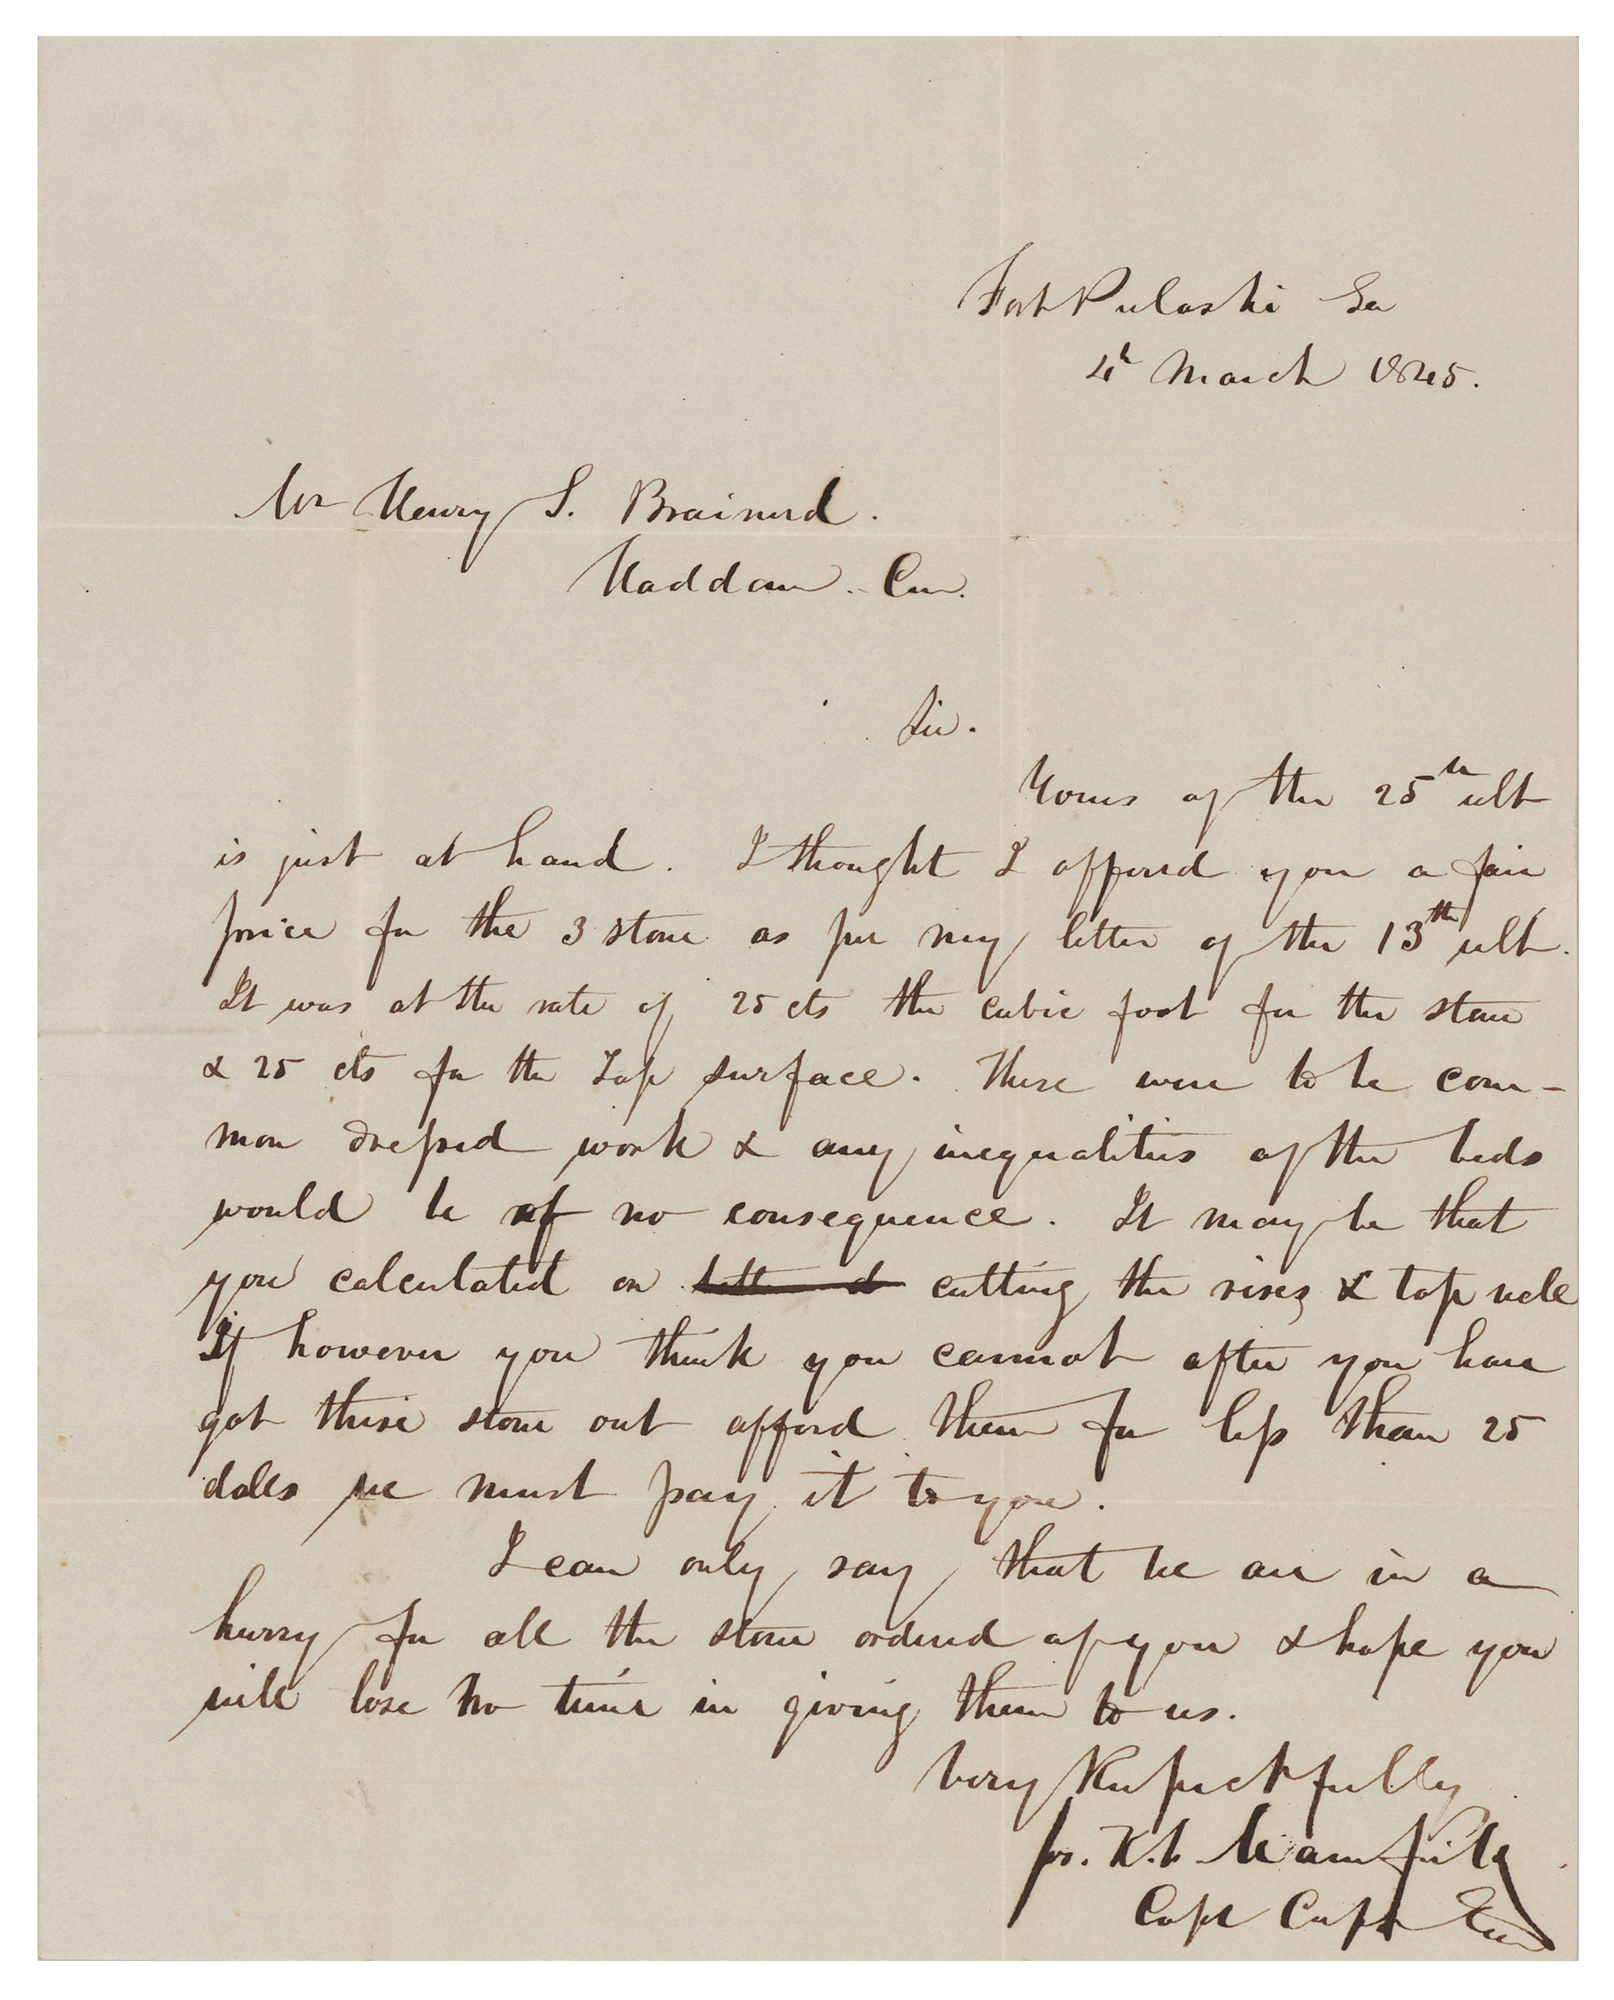 Fort Pulaski Ga
4h March 1845.
Mr Henry S. Brainerd.
Haddam. Con.
Sir.
Yours of the 25th ult
is just at hand. I thought I offered you a fair
price for the 3 stone as per my letter of the 13th ult.
It was at the rate of 25 cts the cubic foot for the stone
& 25 cts for the Top surface. These were to be com-
mon dressed work & any inequalities of the beds
would be of no consequence. It may be that
you calculated on cutting the rises & top well
If however you think you cannot after you have
got these stone out afford them for less than 25
dolls we must pay it to you.
I can only say that we are in a
hurry for all the stone ordered of you & hope you
will lose no time in giving them to us.
Very Respectfully
Jos. K. F. Mansfield
Capt Corps Eng